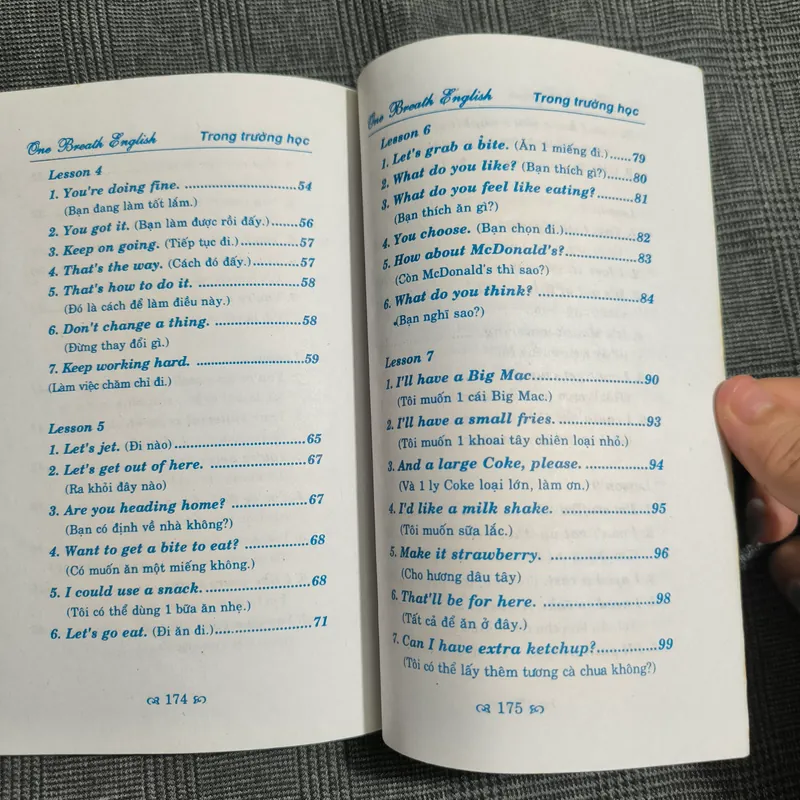 One Breath English Trong trường học
Lesson 4
1. You're doing fine. ..............................54
(Bạn đang làm tốt lắm.)
2. You got it. (Bạn làm được rồi đấy.).......56
3. Keep on going. (Tiếp tục đi.)...............57
4. That's the way. (Cách đó đấy.).............57
5. That's how to do it. ............................58
(Đó là cách để làm điều này.)
6. Don't change a thing. ........................58
(Đừng thay đổi gì.)
7. Keep working hard. ..........................59
(Làm việc chăm chỉ đi.)
Lesson 5
1. Let's jet. (Đi nào)................................65
2. Let's get out of here. .........................67
(Ra khỏi đây nào)
3. Are you heading home? ...................67
(Bạn có định về nhà không?)
4. Want to get a bite to eat? .................68
(Có muốn ăn một miếng không.)
5. I could use a snack. ..........................68
(Tôi có thể dùng 1 bữa ăn nhẹ.)
6. Let's go eat. (Đi ăn đi.)........................71
174
One Breath English Trong trường học
Lesson 6
1. Let's grab a bite. (Ăn 1 miếng đi.)......79
2. What do you like? (Bạn thích gì?)......80
3. What do you feel like eating? ..........81
(Bạn thích ăn gì?)
4. You choose. (Bạn chọn đi.)..................82
5. How about McDonald's? .................83
(Còn McDonald's thì sao?)
6. What do you think? .......................84
(Bạn nghĩ sao?)
Lesson 7
1. I'll have a Big Mac.........................90
(Tôi muốn 1 cái Big Mac.)
2. I'll have a small fries. .................93
(Tôi muốn 1 khoai tây chiên loại nhỏ.)
3. And a large Coke, please. .............94
(Và 1 ly Coke loại lớn, làm ơn.)
4. I'd like a milk shake. ....................95
(Tôi muốn sữa lắc.)
5. Make it strawberry. .......................96
(Cho hương dâu tây)
6. That'll be for here. .......................98
(Tất cả để ăn ở đây.)
7. Can I have extra ketchup?..............99
(Tôi có thể lấy thêm tương cà chua không?)
175